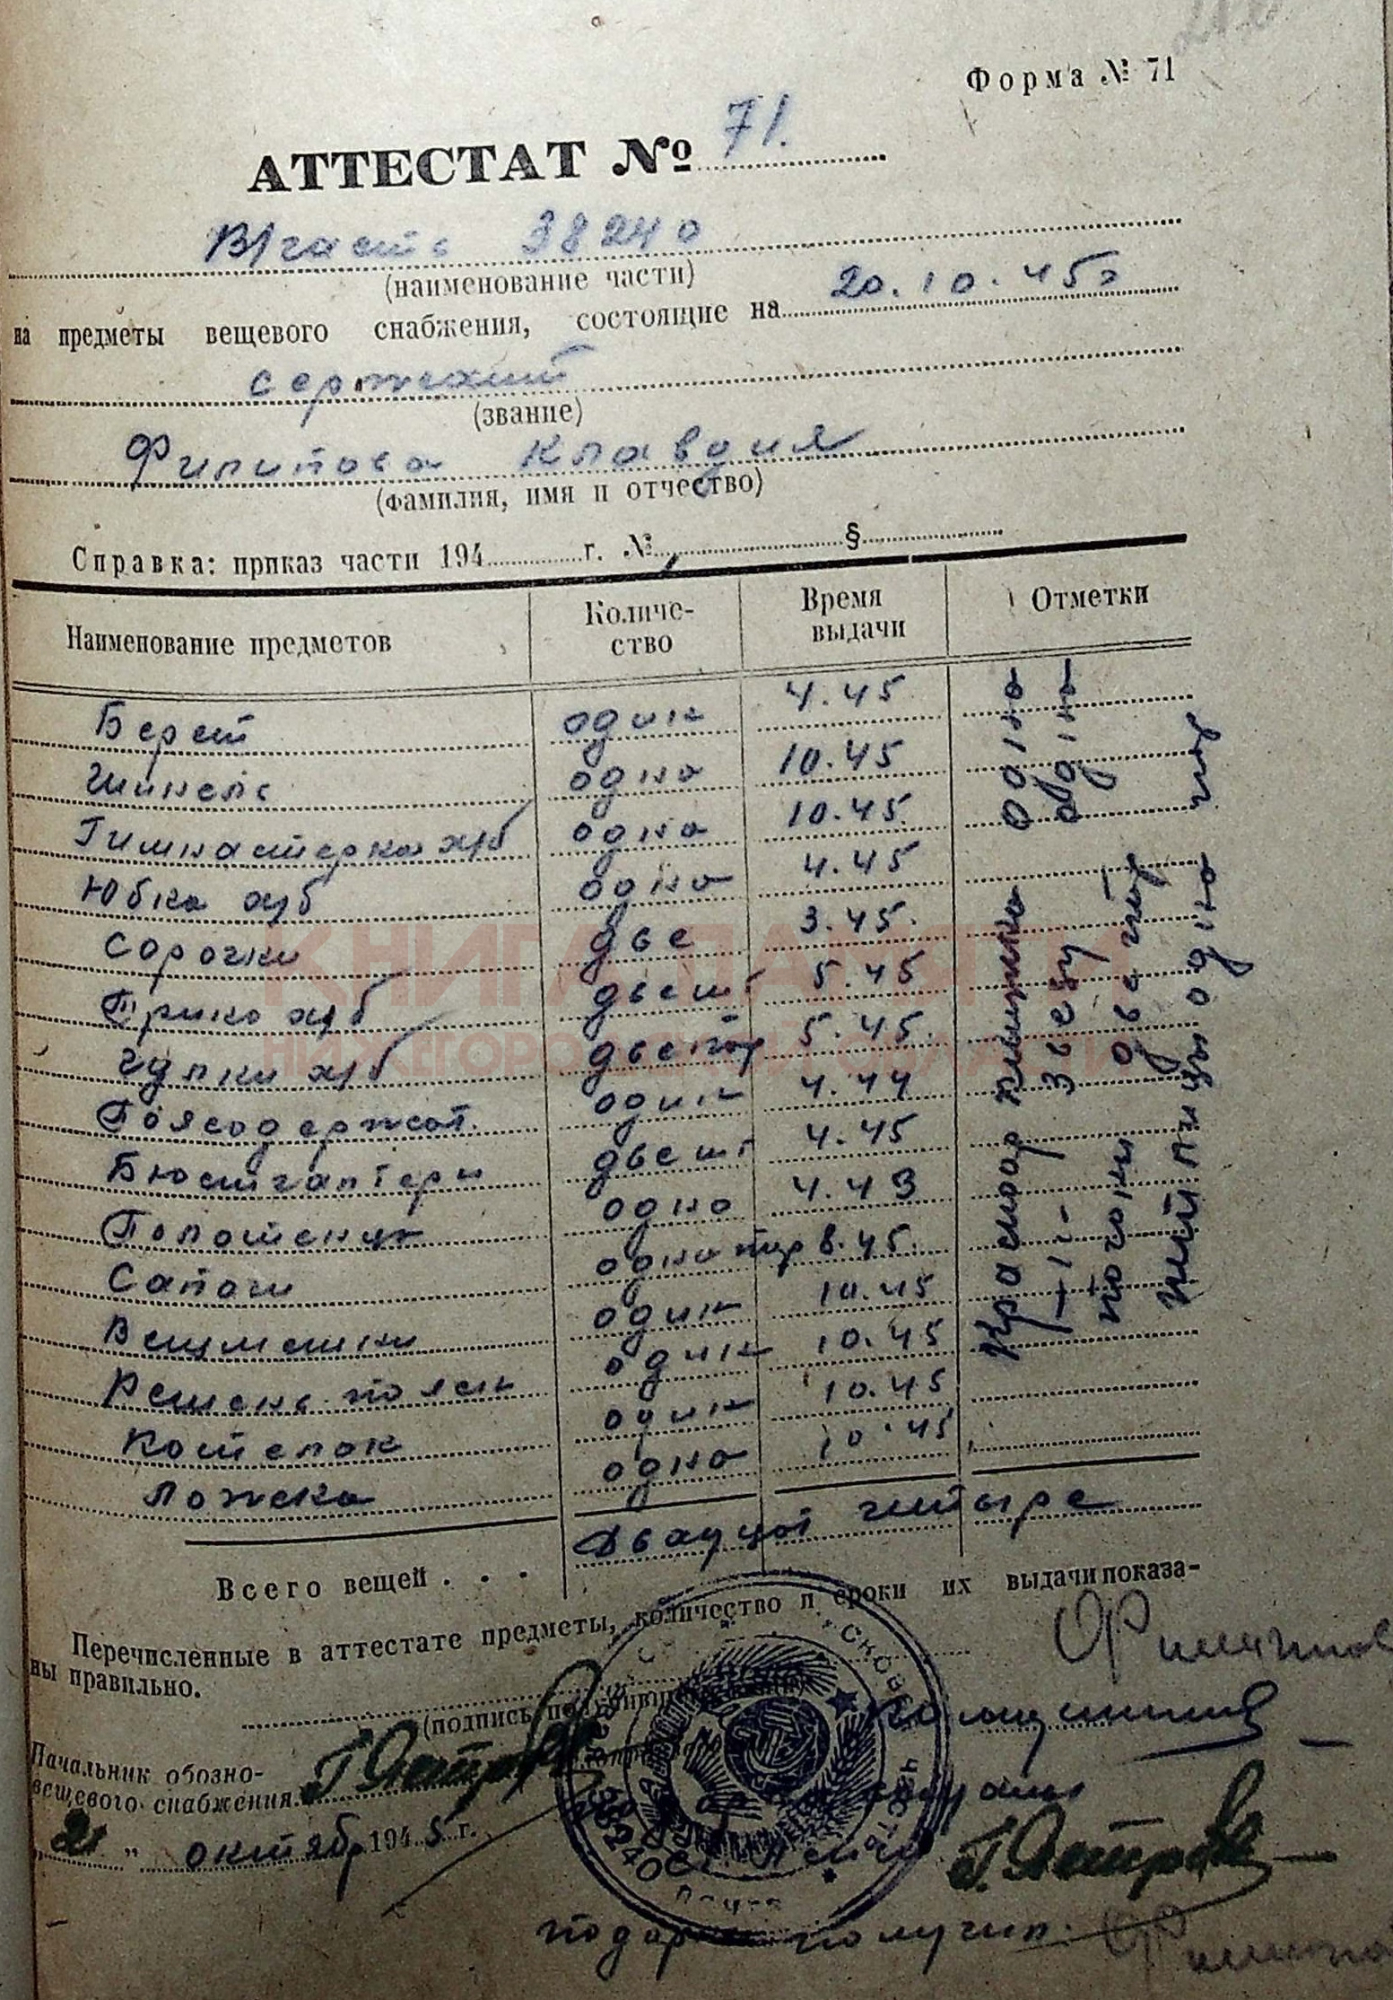 Форма № 71
АТТЕСТАТ № 71.
В/часть 38240
(наименование части)
на предметы вещевого снабжения, состоящие на 20.10.45г
сержант
(звание)
Филипова Клавдия
(фамилия, имя и отчество)
Справка: приказ части 194 г. № §
Наименование предметов Количе- Время Отметки
ство выдачи
Берет один 4.45
Шинель одна 10.45
Гимнастерка х/б одна 10.45
Юбка х/б одна 4.45
Сорочки две 3.45.
Трико х/б две шт 5.45
Чулки х/б две пар 5.45.
Поясодержат. один 4.44
Бюстгалтери две шт 4.45
Полотенце одно 4.43
Сапоги одна пар 8.45.
Вещмешки один 10.45
Ремень поясн один 10.45
Котелок один 10.45
Ложка одна 10.45
Краснoар книжка одна
-"- звезду одна
погоны две пар
петлицы одна пар
Двадцат четыре
Всего вещей . . .
Перечисленные в аттестате предметы, количество и сроки их выдачи показа-
ны правильно.
(подпись
Начальник обозно-
вещевого снабжения. Г. Петров
"21" октябр 1945 г.
38240
Г. Петров
подар получил.
КНИГА ПАМЯТИ
НИЖЕГОРОДСКОЙ ОБЛАСТИ